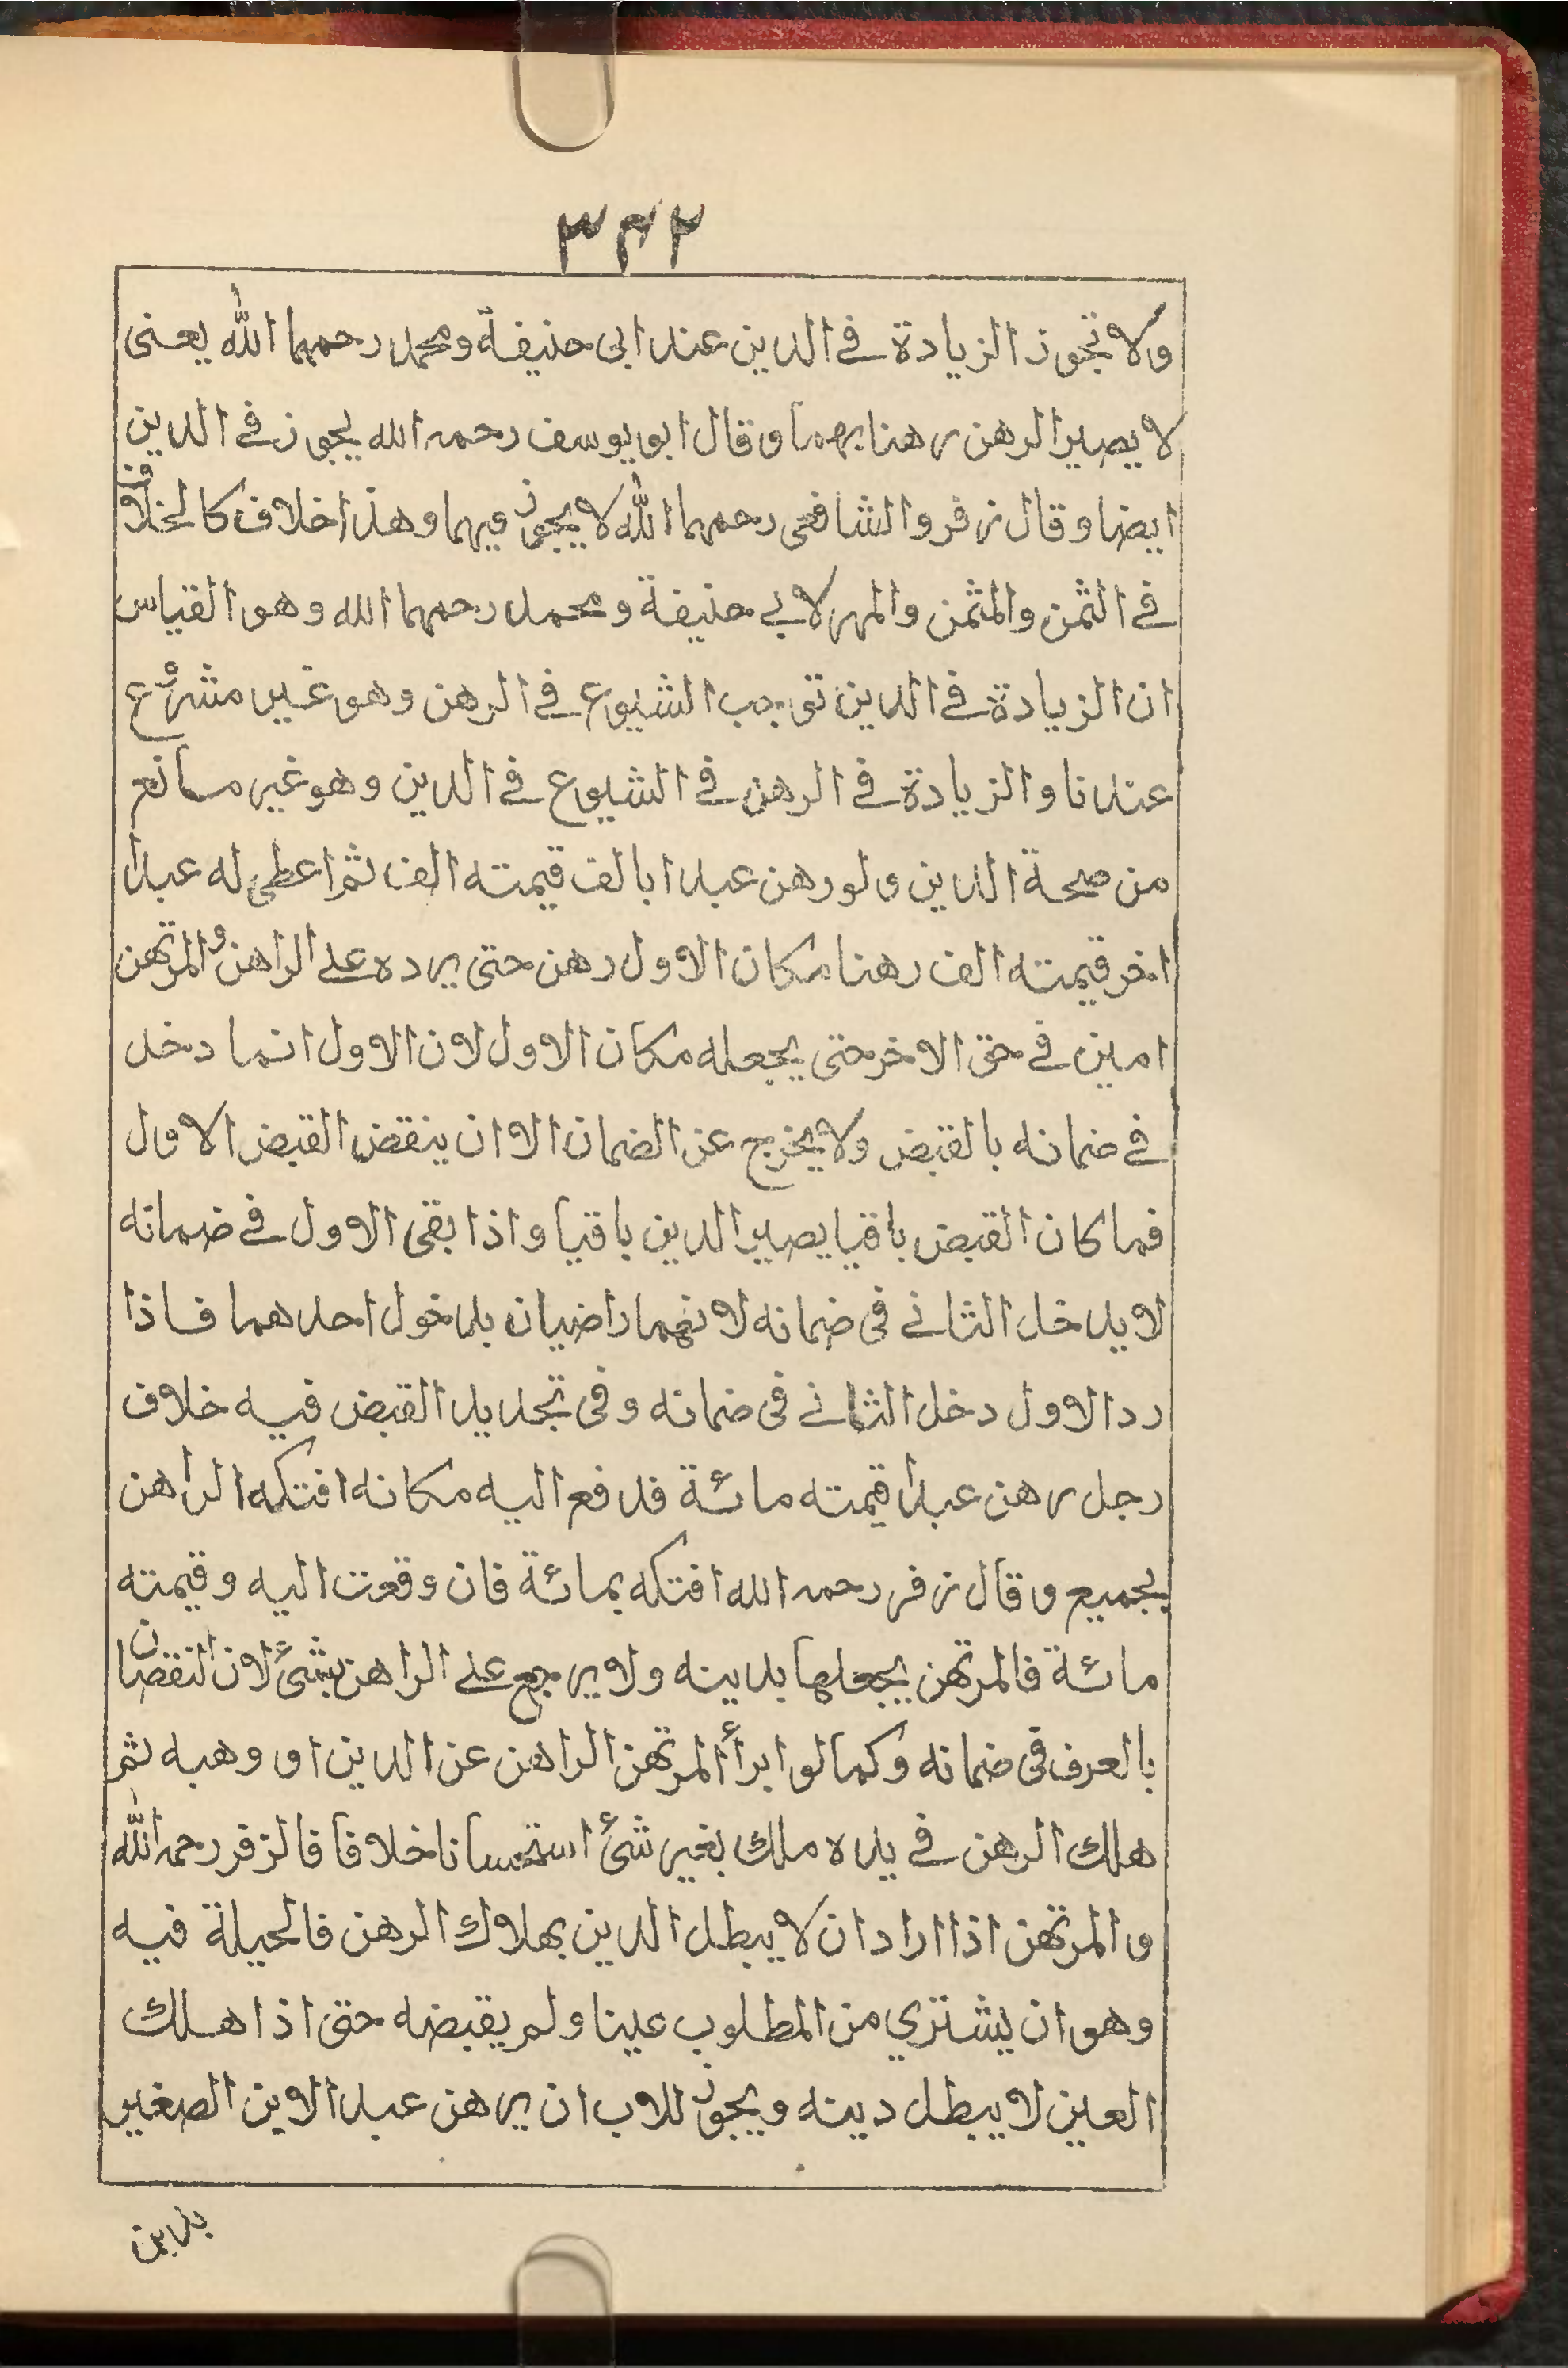 ٣٤٢
ولا تجوز الزيادة في الدين عند ابى حنيفة ومحمد رحمهما الله يعنى
لا يصير الرهن رهنا بهما وقال ابو يوسف رحمه الله يجوز في الدين
ايضا وقال زفر والشافعى رحمهما الله لا يجوز فيهما وهذا خلاف كالخلاف
في الثمن والمثمن والمهر لابي حنيفة ومحمد رحمهما الله وهو القياس
ان الزيادة في الدين توجب الشيوع في الرهن وهو غير مشروع
عندنا والزيادة في الرهن في الشيوع في الدين وهو غير مانع
من صحة الدين ولو رهن عبدا بالف قيمته الف ثم اعطى له عبدا
اخر قيمته الف رهنا مكان الاول رهن حتى يرده على الراهن والمرتهن
امين في حق الاخر حتى يجعله مكان الاول لان الاول انما دخل
في ضمانه بالقبض ولا يخرج عن الضمان الا ان ينقض القبض الاول
فما كان القبض باقيا يصير الدين باقيا واذا بقى الاول في ضمانه
لا يدخل الثاني في ضمانه لانهما راضيان بدخول احدهما فاذا
رد الاول دخل الثاني في ضمانه وفى تجديد القبض فيه خلاف
رجل رهن عبدا قيمته مائة فدفع اليه مكانه افتكه الراهن
بجميع وقال زفر رحمه الله افتكه بمائة فان وقعت اليه وقيمته
مائة فالمرتهن يجعلها بدينه ولا يرجع على الراهن بشئ لان النقصان
بالعرف فى ضمانه وكما لو ابرأ المرتهن الراهن عن الدين او وهبه ثم
هلك الرهن في يده ملك بغير شئ استحسانا خلافا فالزفر رحمه الله
والمرتهن اذا اراد ان لا يبطل الدين بهلاك الرهن فالحيلة فيه
وهو ان يشتري من المطلوب عينا ولم يقبضه حتى اذا هلك
العين لا يبطل دينه ويجوز للاب ان يرهن عبد الابن الصغير
بدين